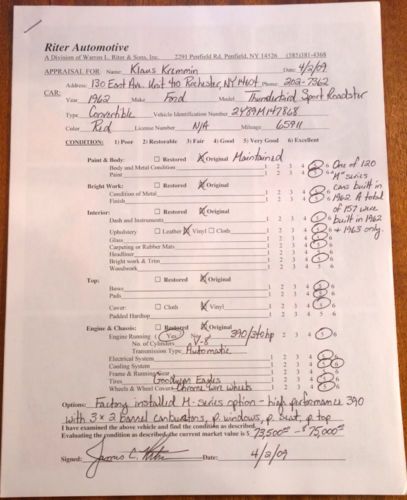 Riter Automotive
A Division of Warren L. Riter & Sons, Inc. 2291 Penfield Rd. Penfield, NY 14526 (585)381-4368
APPRAISAL FOR Name: Klaus Kremmin Date: 4/2/09
Address: 130 East Ave. Unit 400 Rochester, NY 14604 Phone: 202-7362
CAR:
Year 1962 Make Ford Model Thunderbird Sport Roadster
Type Convertible Vehicle Identification Number 2Y89M147868
Color Red License Number N/A Mileage 65911
CONDITION: 1) Poor 2) Restorable 3) Fair 4) Good 5) Very Good 6) Excellent
Paint & Body: ☐ Restored ☒ Original Maintained
Body and Metal Condition 1 2 3 4 5 6 One of 120
Paint 1 2 3 4 5 6 "M" series
Bright Work: ☐ Restored ☒ Original cars built in
Condition of Metal 1 2 3 4 5 6 1962 A total
Finish 1 2 3 4 5 6 of 157 were
Interior: ☐ Restored ☒ Original built in 1962
Dash and Instruments 1 2 3 4 5 6 + 1963 only.
Upholstery ☐ Leather ☒ Vinyl ☐ Cloth 1 2 3 4 5 6
Glass 1 2 3 4 5 6
Carpeting or Rubber Mats 1 2 3 4 5 6
Headliner 1 2 3 4 5 6
Bright work & Trim 1 2 3 4 5 6
Woodwork 1 2 3 4 5 6
Top: ☐ Restored ☒ Original
Bows 1 2 3 4 5 6
Pads 1 2 3 4 5 6
Cover: ☐ Cloth ☒ Vinyl 1 2 3 4 5 6
Padded Hardtop 1 2 3 4 5 6
Engine & Chassis: ☐ Restored ☒ Original
Engine Running Yes No 390/340hp 1 2 3 4 5 6
No. of Cylinders V-8
Transmission Type Automatic
Electrical System 1 2 3 4 5 6
Cooling System 1 2 3 4 5 6
Frame & Running Gear 1 2 3 4 5 6
Tires Goodyear Eagles 1 2 3 4 5 6
Wheels & Wheel Covers Chrome wire wheels 1 2 3 4 5 6
Options: Factory installed M-series option - high performance 390
with 3 x 2 barrel carburetors, p. windows, p. seat, p. top
I have examined the above vehicle and find the condition as described.
Evaluating the condition as described, the current market value is $ 73,500 - $75,000
Signed: James C. Riter Date: 4/2/09